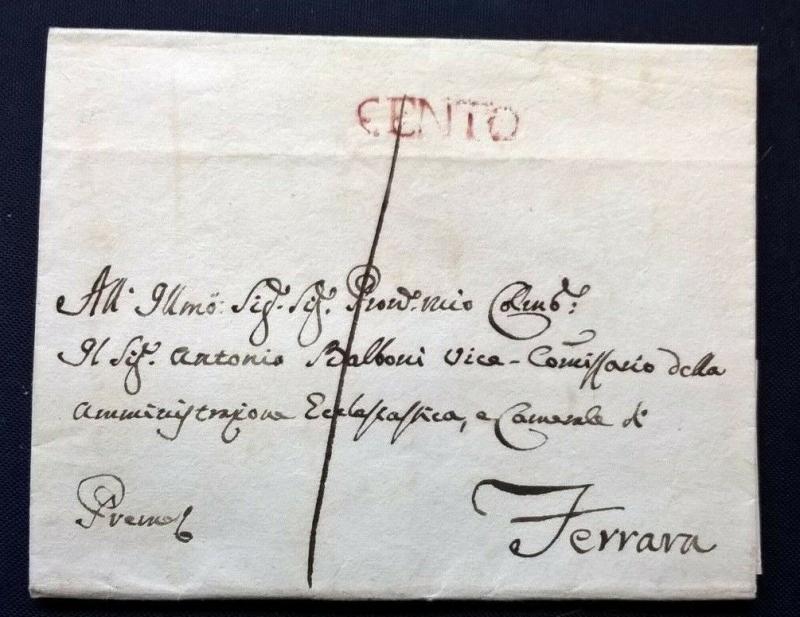 CENTO
All' Illmo: Sig.r Sig.r Pron.e mio Colmo:
Il Sig.r Antonio Balboni Vice-Comissario della
Amministrazione Ecclesiastica, e Camerale di
Ferrara